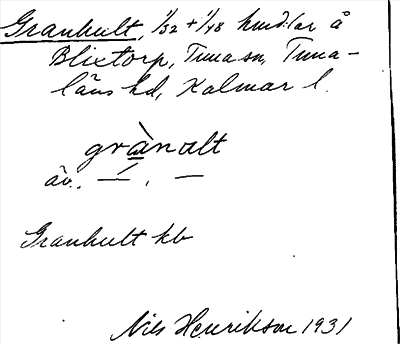 Granhult, 1/32 + 1/48 hmdlar å
Blixtorp, Tuna sn, Tuna-
läns hd, Kalmar l.
grànalt
äv. —́. —
Granhult kb
Nils Henrikson 1931